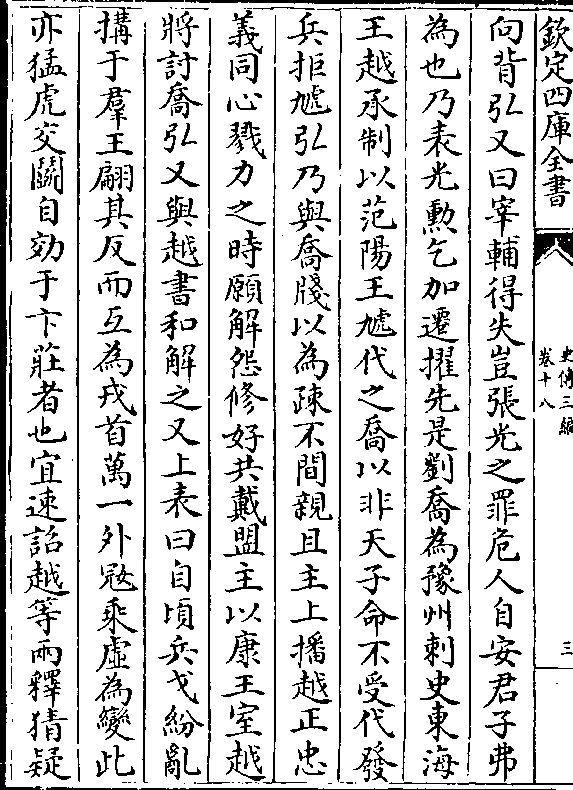 欽定四庫全書
史傳三編
卷十八
三
向背弘又曰宰輔得失豈張光之罪危人自安君子弗
為也乃表光勲乞加遷擢先是劉喬為豫州刺史東海
王越承制以范陽王虓代之喬以非天子命不受代發
兵拒虓弘乃與喬牋以為疎不間親且主上播越正忠
義同心戮力之時願解怨修好共戴盟主以康王室越
將討喬弘又與越書和解之又上表曰自頃兵戈紛亂
搆于羣王翩其反而互為戎首萬一外冦乘虛為變此
亦猛虎交鬭自効于卞莊者也宜速詔越等兩釋猜疑